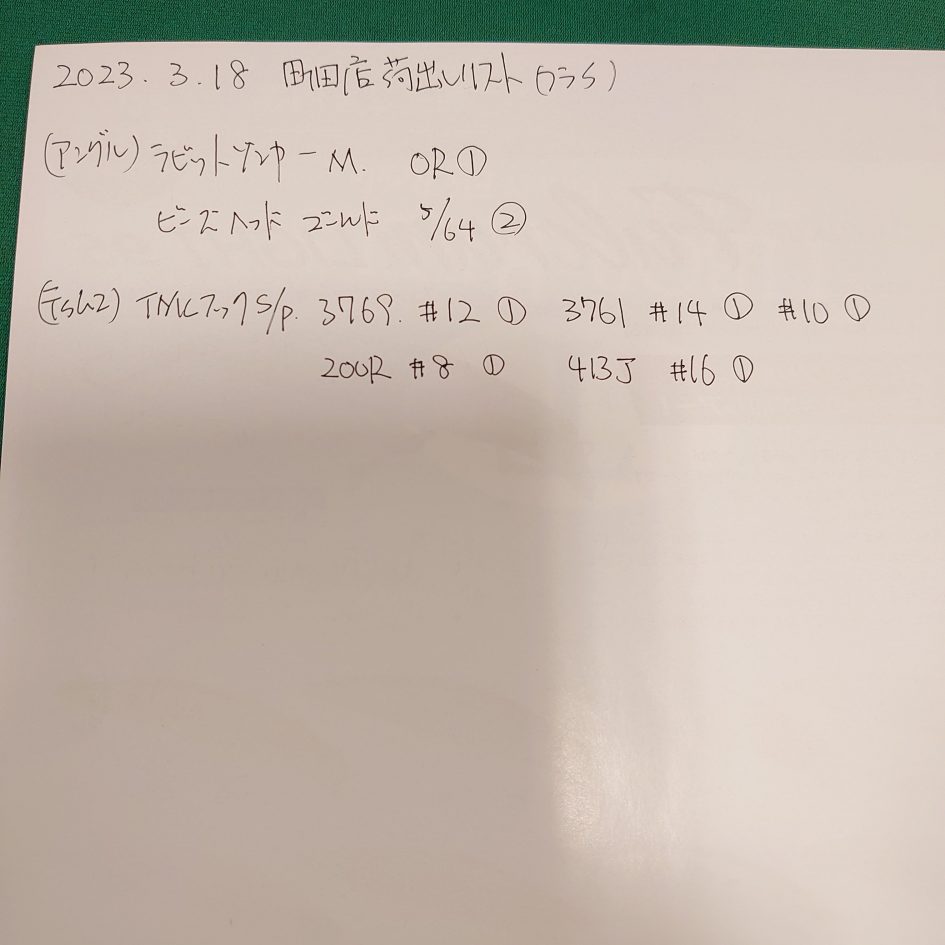 2023.3.18 町田店荷出しリスト(ウラら)
(アングル) ラビットゾンカー M. OR①
ビーズヘッド ゴールド 5/64 ②
TMCフック S/P. 3769. #12 ① 3761 #14 ① #10 ①
200R #8 ① 413J #16 ①